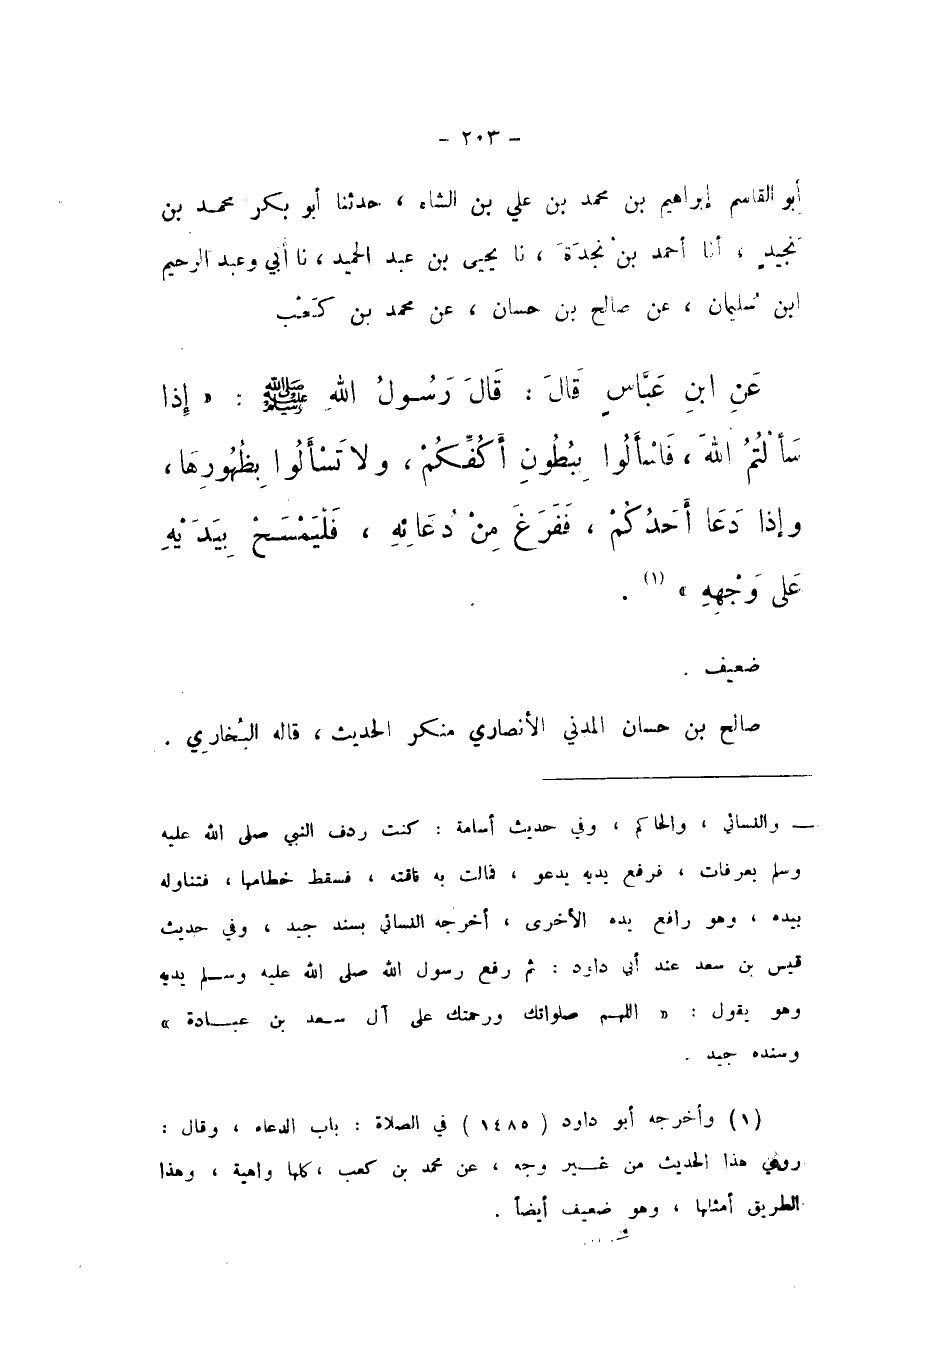 - ٢٠٣ -
أبو القاسم إبراهيم بن محمد بن علي بن الشاه ، حدثنا أبو بكر محمد بن
نجيدٍ ، أنا أحمد بنْ نجدَةَ ، نا يحيى بن عبد الحميد ، نا أبي وعبد الرحيم
ابن سُليمان ، عن صالح بن حسان ، عن محمد بن كَعْب
عَنِ ابنِ عَبَّاسٍ قَالَ : قَالَ رَسُولُ اللهِ ﷺ : « إِذا
سَأَلْتُمُ اللهَ ، فَاسْأَلُوا بِبُطُونِ أَكُفِّكُمْ ، ولا تَسْأَلُوا بِظُهُورِها ،
وإذا دَعَا أَحَدُكُمْ ، فَفَرَغَ مِنْ دُعَائِهِ ، فَلْيَمْسَحْ بِيَدَيْهِ
عَلى وَجْهِهِ » (١) .
ضعيف .
صالح بن حسان المدني الأنصاري منكر الحديث ، قاله البُخاري .
ــ والنسائي ، والحاكم ، وفي حديث أسامة : كنت ردف النبي صلى الله عليه
وسلم بعرفات ، فرفع يديه يدعو ، فمالت به ناقته ، فسقط خطامها ، فتناوله
بيده ، وهو رافع يده الأخرى ، أخرجه النسائي بسند جيد ، وفي حديث
قيس بن سعد عند أبي داود : ثم رفع رسول الله صلى الله عليه وسلم يديه
وهو يقول : « اللهم صلواتك ورحمتك على آل سعد بن عبادة »
وسنده جيد .
(١) وأخرجه أبو داود ( ١٤٨٥ ) في الصلاة : باب الدعاء ، وقال :
روي هذا الحديث من غير وجه ، عن محمد بن كعب ، كلها واهية ، وهذا
الطريق أمثلها ، وهو ضعيف أيضاً .